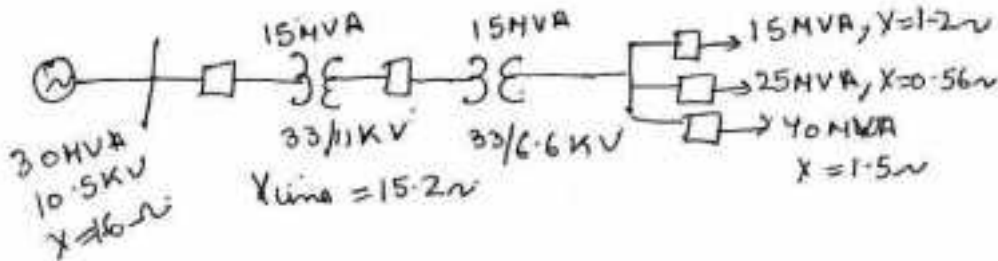 15MVA 15MVA
15MVA, X=1.2~
25MVA, X=0.56~
40MVA
X=1.5~
30MVA
10.5KV
X=16~
33/11KV 33/6.6KV
Xline =15.2~